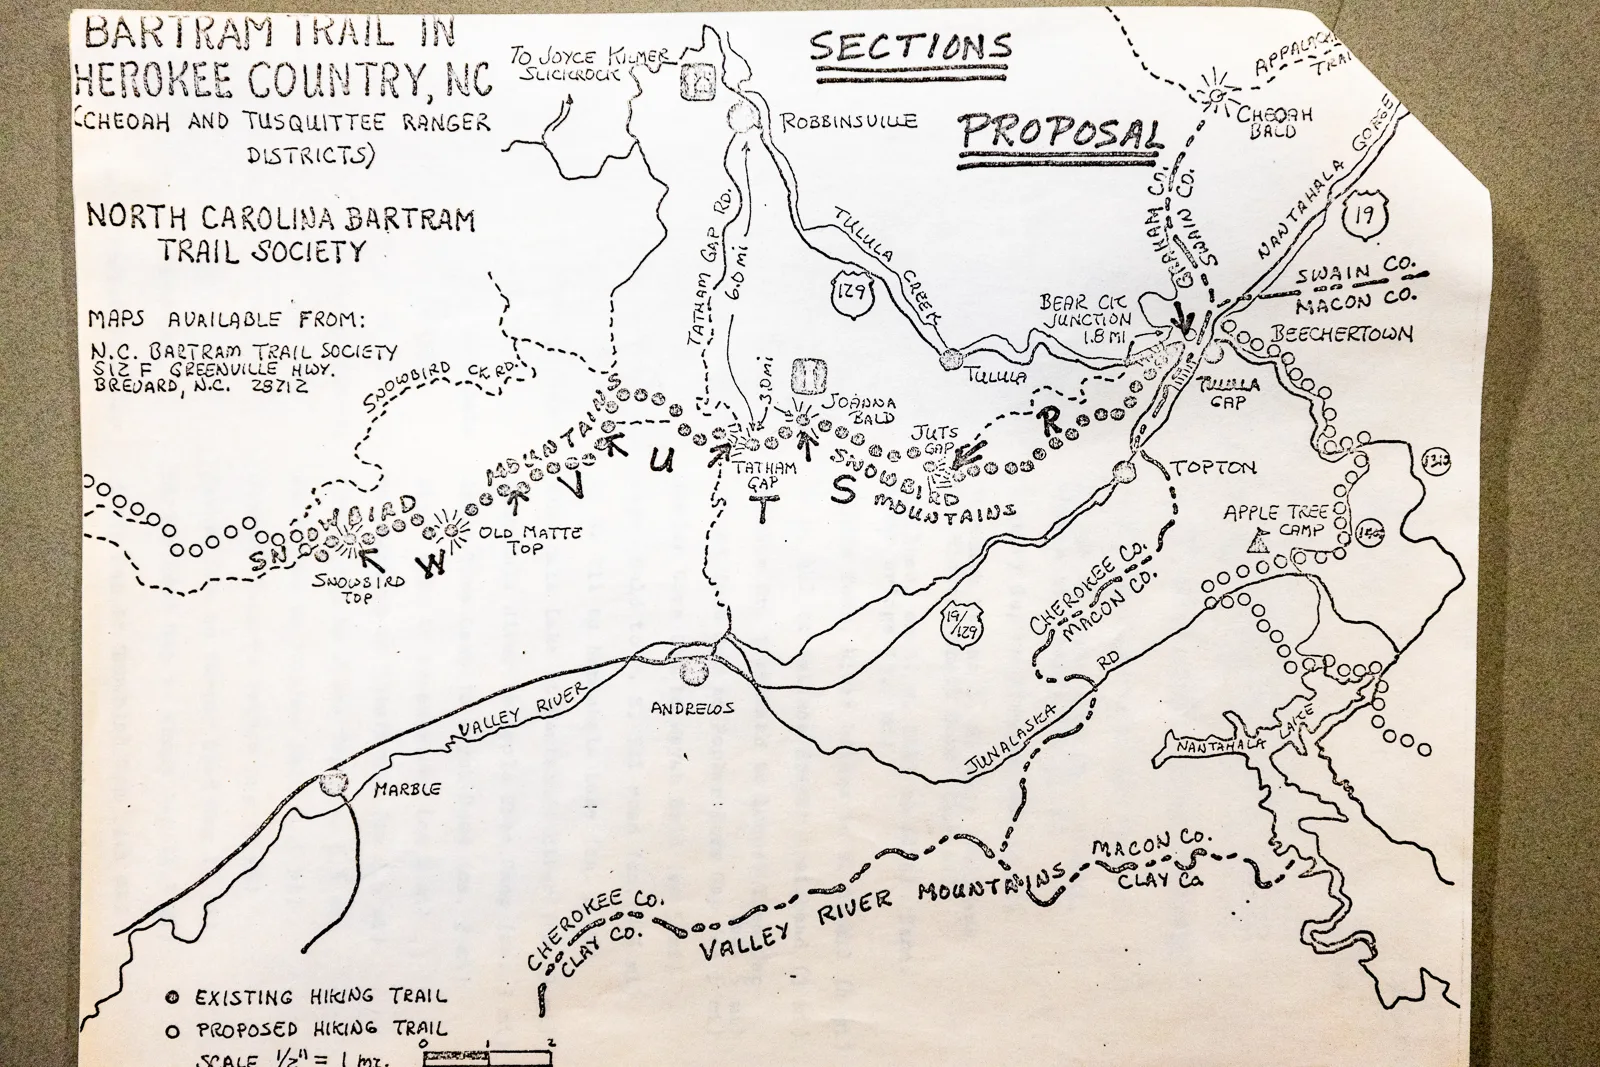 BARTRAM TRAIL IN
HEROKEE COUNTRY, NC
(CHEOAH AND TUSQUITTEE RANGER
DISTRICTS)
NORTH CAROLINA BARTRAM
TRAIL SOCIETY
MAPS AVAILABLE FROM:
N.C. BARTRAM TRAIL SOCIETY
512 F GREENVILLE HWY.
BREVARD, N.C. 28712
SECTIONS
PROPOSAL
TO JOYCE KILMER
SLICKROCK
ROBBINSVILLE
APPALAC
TRAI
CHEOAH
BALD
NANTAHALA GORGE
19
GRAHAM CO.
SWAIN CO.
SWAIN CO.
MACON CO.
TATHAM GAP RD.
6.0 MI
TULULA CREEK
129
BEAR CK
JUNCTION
1.8 MI
BEECHERTOWN
TULULA
TULULA
GAP
SNOWBIRD CK RD.
3.0 MI
JOANNA
BALD
JUTS
GAP
R
TOPTON
SNOWBIRD MOUNTAINS
U
TATHAM
GAP
T
S
SNOWBIRD
MOUNTAINS
V
W
OLD MATTE
TOP
SNOWBIRD
TOP
APPLE TREE
CAMP
CHEROKEE CO.
MACON CO.
19/129
ANDREWS
VALLEY RIVER
JUNALASKA RD
NANTAHALA LAKE
MARBLE
MACON CO.
CLAY CO
CHEROKEE CO.
CLAY CO.
VALLEY RIVER MOUNTAINS
EXISTING HIKING TRAIL
PROPOSED HIKING TRAIL
SCALE 1/2" = 1 MI.
0 1 2